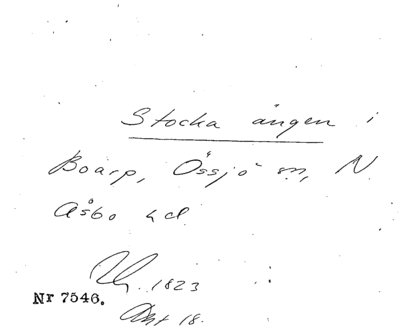 Stocka ängen i
Boarp, Össjö sn, N.
Åsbo hd.
1823
Nr 7546.
Akt 18.